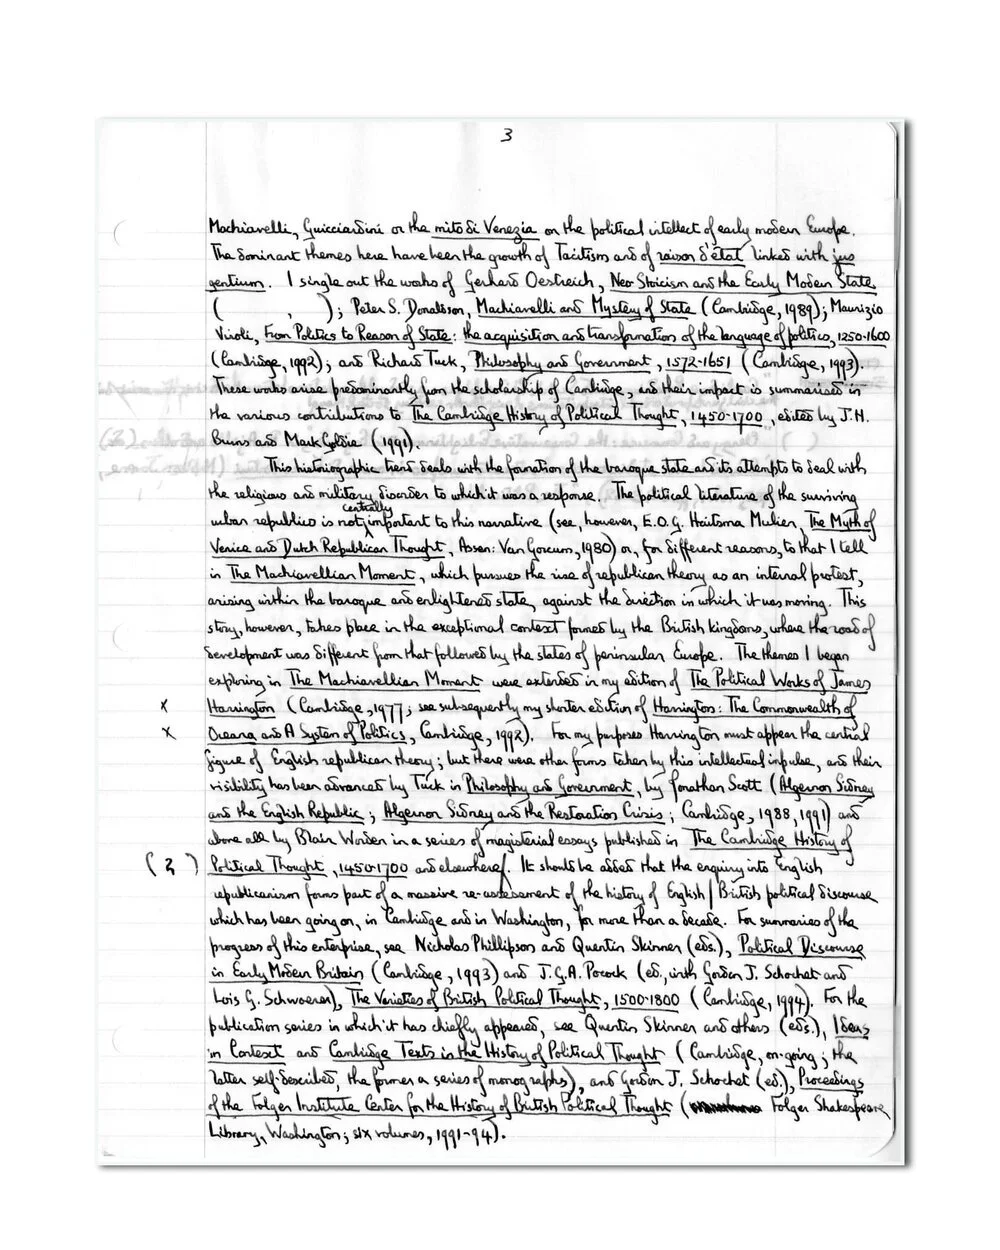 3
Machiavelli, Guicciardini or the mito di Venezia on the political intellect of early modern Europe.
The dominant themes here have been the growth of Tacitism and of raison d'état linked with jus
gentium. I single out the works of Gerhard Oestreich, Neo Stoicism and the Early Modern State
( , ); Peter S. Donaldson, Machiavelli and Mystery of State (Cambridge, 1989); Maurizio
Viroli, From Politics to Reason of State: the acquisition and transformation of the language of politics, 1250-1600
(Cambridge, 1992); and Richard Tuck, Philosophy and Government, 1572-1651 (Cambridge, 1993).
These works arise predominantly from the scholarship of Cambridge, and their impact is summarised in
the various contributions to The Cambridge History of Political Thought, 1450-1700, edited by J.H.
Burns and Mark Goldie (1991).
This historiographic trend deals with the formation of the baroque state and its attempts to deal with
the religious and military disorder to which it was a response. The political literature of the surviving
urban republics is not centrally important to this narrative (see, however, E.O.G. Haitsma Mulier, The Myth of
Venice and Dutch Republican Thought, Assen: Van Gorcum, 1980) or, for different reasons, to that I tell
in The Machiavellian Moment, which pursues the rise of republican theory as an internal protest,
arising within the baroque and enlightened state, against the direction in which it was moving. This
story, however, takes place in the exceptional context formed by the British kingdoms, where the road of
development was different from that followed by the states of peninsular Europe. The themes I began
exploring in The Machiavellian Moment were extended in my edition of The Political Works of James
x Harrington (Cambridge, 1977; see subsequently my shorter edition of Harrington: The Commonwealth of
x Oceana and A System of Politics, Cambridge, 1992). For my purposes Harrington must appear the central
figure of English republican theory; but there were other forms taken by this intellectual impulse, and their
visibility has been advanced by Tuck in Philosophy and Government, by Jonathan Scott (Algernon Sidney
and the English Republic; Algernon Sidney and the Restoration Crisis; Cambridge, 1988, 1991) and
above all by Blair Worden in a series of magisterial essays published in The Cambridge History of
(3) Political Thought, 1450-1700 and elsewhere/. It should be added that the enquiry into English
republicanism forms part of a massive re-assessment of the history of English/British political discourse
which has been going on, in Cambridge and in Washington, for more than a decade. For summaries of the
progress of this enterprise, see Nicholas Phillipson and Quentin Skinner (eds.), Political Discourse
in Early Modern Britain (Cambridge, 1993) and J.G.A. Pocock (ed., with Gordon J. Schochet and
Lois G. Schwoerer), The Varieties of British Political Thought, 1500-1800 (Cambridge, 1994). For the
publication series in which it has chiefly appeared, see Quentin Skinner and others (eds.), Ideas
in Context and Cambridge Texts in the History of Political Thought (Cambridge, on-going; the
latter self-described, the former a series of monographs), and Gordon J. Schochet (ed.), Proceedings
of the Folger Institute Center for the History of British Political Thought ( Folger Shakespeare
Library, Washington; six volumes, 1991-94).